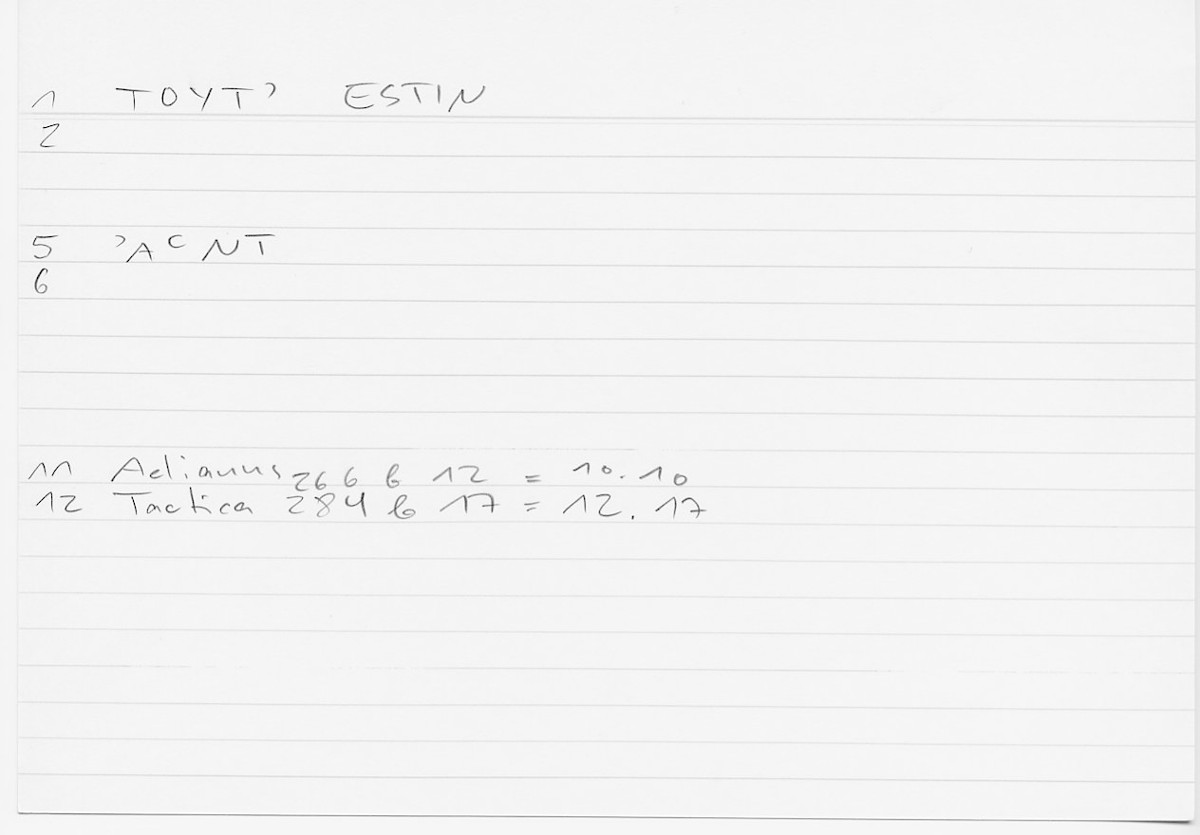 1 TOYT' ESTIN
2
5 'ACNT
6
11 Aelianus 266 b 12 = 10.10
12 Tactica 284 b 17 = 12.17